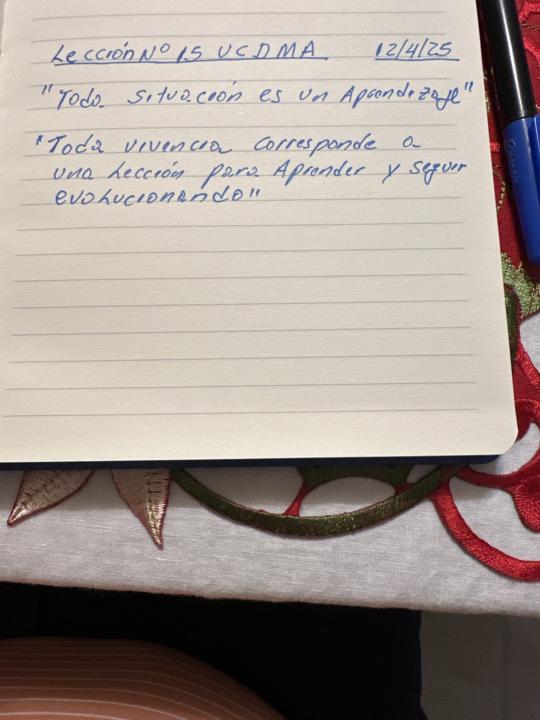 Lección Nº 15 UCDMA 12/4/25
"Toda situación es un Aprendizaje"
"Toda vivencia corresponde a
una Lección para Aprender y seguir
evolucionando"